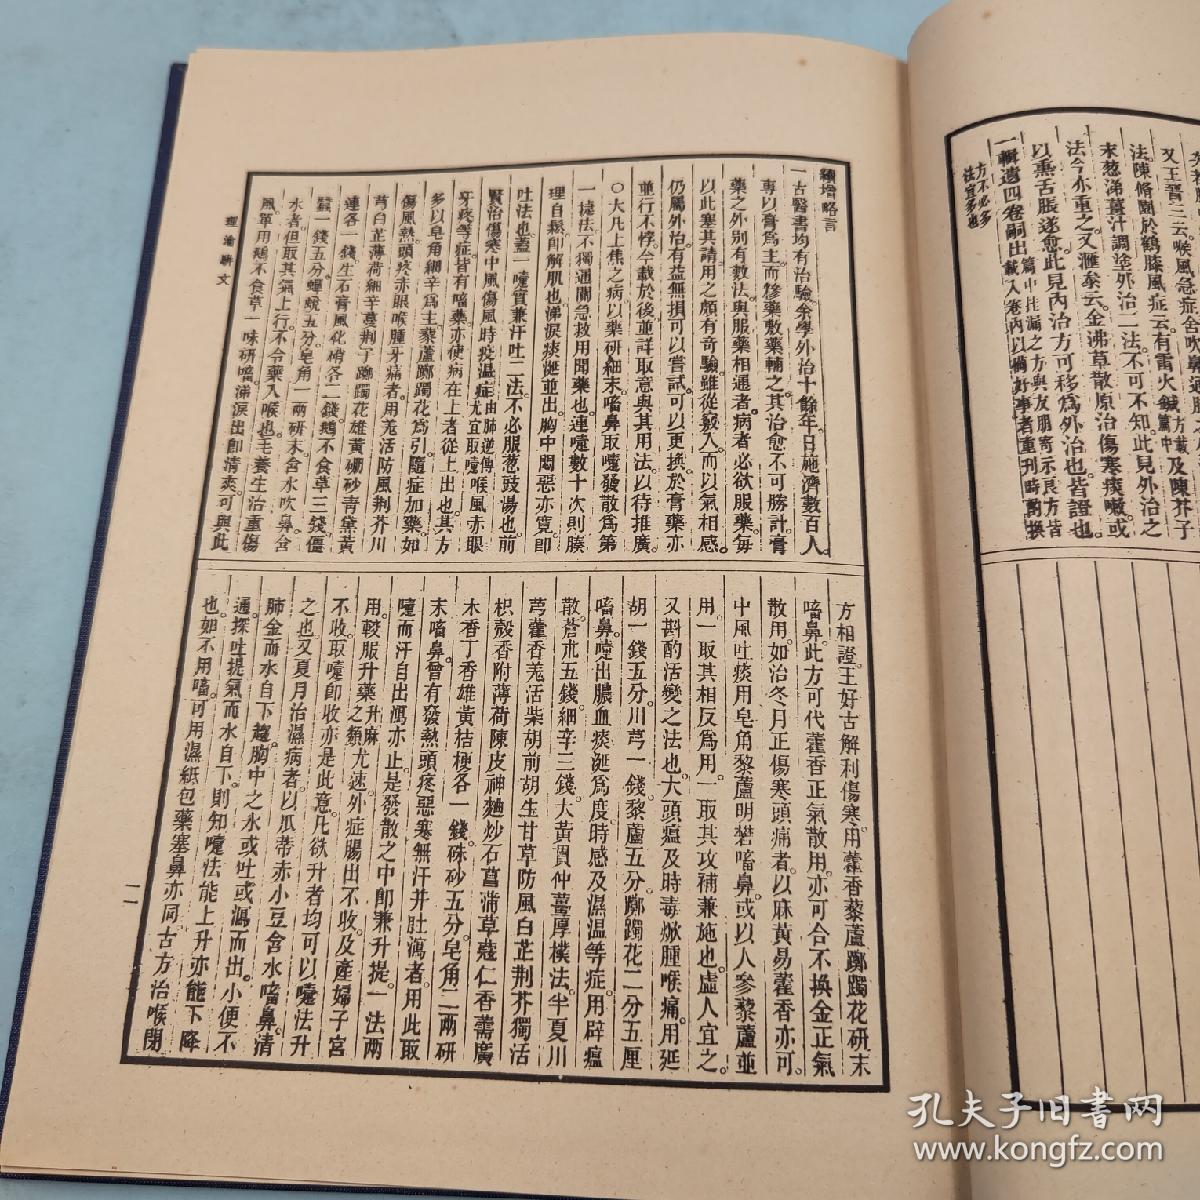 又王晉三云喉風急症舍吹鼻通肺之
法陳脩園於鶴膝風症云有雷火鍼篇中方載及陳芥子
末葱涕薑汁調塗外治二法不可不知此見外治之
法今亦重之又滙參云金沸草散原治傷寒痰嗽或
以熏舌脹遂愈此見內治方可移爲外治也皆證也
一輯遺四卷嗣出
方不必多
法宜多也
續增略言
一古醫書均有治驗余學外治十餘年日施濟數百人
專以膏爲主而糝藥敷藥輔之其治愈不可勝計膏
藥之外別有數法與服藥相通者病者必欲服藥每
以此塞其請用之頗有奇驗雖從竅入而以氣相感
仍屬外治有益無損可以嘗試可以更換於膏藥亦
並行不悖今載於後並詳取意與其用法以待推廣
○大凡上焦之病以藥研細末嗃鼻取嚏發散爲第
一捷法不獨通關急救用聞藥也連嚏數十次則腠
理自鬆卽解肌也涕淚痰涎並出胸中悶惡亦寬卽
吐法也蓋一嚏實兼汗吐二法不必服葱豉湯也前
賢治傷寒中風傷風時疫温症由肺逆傳尤宜取嚏喉風赤眼
牙疼等症皆有嗃藥亦使病在上者從上出也其方
多以皂角細辛爲主藜蘆躑躅花爲引隨症加藥如
傷風熱頭疼赤眼喉腫牙痛者用羌活防風荆芥川
芎白芷薄荷細辛蔓荆子躑躅花雄黃硼砂青黛黃
連各一錢生石膏風化硝各二錢鵝不食草三錢僵
蠶一錢五分蟬蛻五分皂角一兩研末含水吹鼻含
水者但取其氣上行不令藥入喉也毛養生治重傷
風單用鵝不食草一味研嗃涕淚出卽清爽可與此
理瀹駢文
方相證王好古解利傷寒用藿香藜蘆躑躅花研末
嗃鼻此方可代藿香正氣散用亦可合不換金正氣
散用如治冬月正傷寒頭痛者以麻黃易藿香亦可
中風吐痰用皂角藜蘆明礬嗃鼻或以人參藜蘆並
用一取其相反爲用一取其攻補兼施也虛人宜之
又斟酌活變之法也大頭瘟及時毒焮腫喉痛用延
胡一錢五分川芎一錢藜蘆五分躑躅花二分五厘
嗃鼻嚏出膿血痰涎爲度時感及濕温等症用辟瘟
散蒼朮五錢細辛三錢大黃貫仲薑厚樸法半夏川
芎藿香羌活柴胡前胡生甘草防風白芷荆芥獨活
枳殼香附薄荷陳皮神麯炒石菖蒲草蔻仁香薷廣
木香丁香雄黃桔梗各一錢硃砂五分皂角二兩研
末嗃鼻曾有發熱頭疼惡寒無汗并肚瀉者用此取
嚏而汗自出瀉亦止是發散之中卽兼升提一法兩
用較服升藥升麻之類尤速外症腸出不收及產婦子宮
不收取嚏卽收亦是此意凡欲升者均可以嚏法升
之也又夏月治濕病者以瓜蒂赤小豆含水嗃鼻清
肺金而水自下蘊胸中之水或吐或瀉而出小便不
通探吐提氣而水自下則知嚏法能上升亦能下降
也如不用嗃可用濕紙包藥塞鼻亦同古方治喉閉
二
孔夫子旧书网
www.kongfz.com